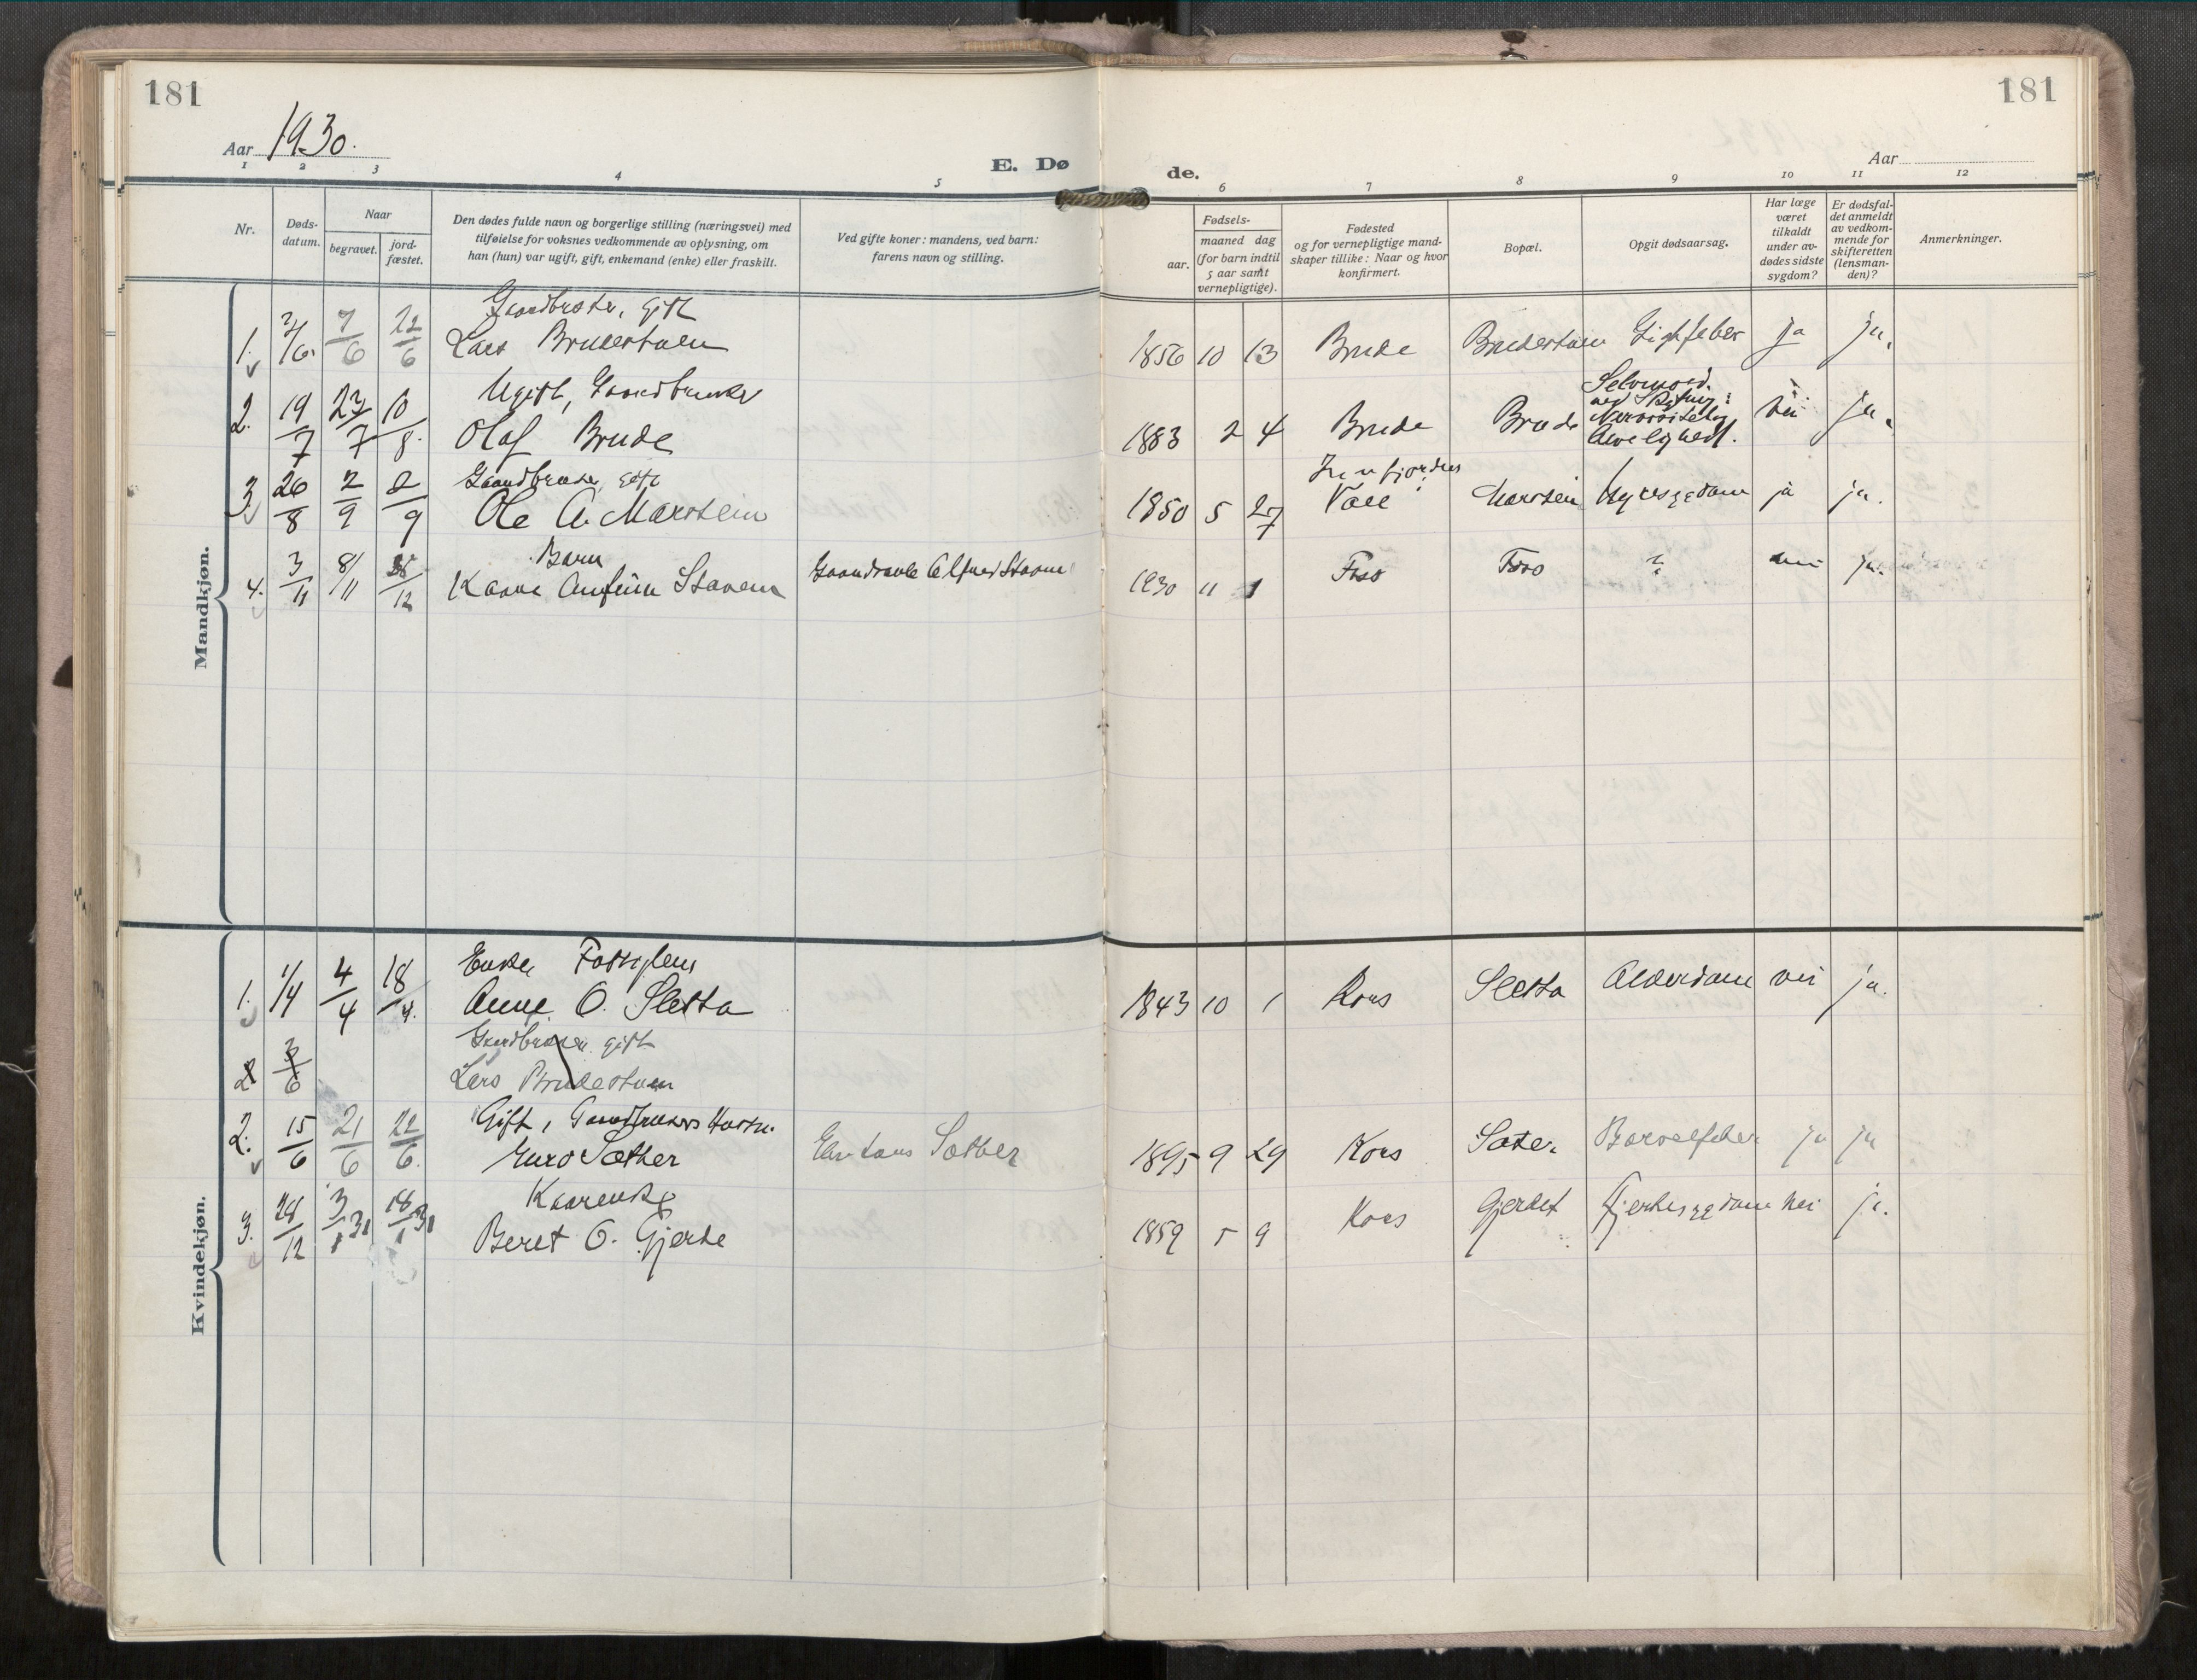 181
181
Aar 1930.
Aar
E. Dø
de.
1 2 3 4 5 6 7 8 9 10 11 12
Nr.
Døds-
datum.
Naar
begravet.
jord-
fæstet.
Den dødes fulde navn og borgerlige stilling (næringsvei) med
tilføielse for voksnes vedkommende av oplysning, om
han (hun) var ugift, gift, enkemand (enke) eller fraskilt.
Ved gifte koner: mandens, ved barn:
farens navn og stilling.
Fødsels-
aar.
maaned dag
(for barn indtil
5 aar samt
vernepligtige).
Fødested
og for vernepligtige mand-
skaper tillike: Naar og hvor
konfirmert.
Bopæl.
Opgit dødsaarsag.
Har læge
været
tilkaldt
under av-
dødes sidste
sygdom?
Er dødsfal-
det anmeldt
av vedkom-
mende for
skifteretten
(lensman-
den)?
Anmerkninger.
Mandkjøn.
Gaardbruker, gift
1. 2/6. 7/6 22/6 Lars Brudestuen 1856 10 13 Brude Brudestuen Gigtfeber ja ja.
Ugift, Gaardbruker
2. 19/7 23/7 10/8. Olaf Brude 1883 2 4 Brude Brude Selvmord nei ja.
Gaardbruker, gift
3. 26/8 2/9 2/9 Ole A. Marstein 1850 5 27 Marstein ja ja.
Barn
4. 3/11 8/11 /12 Kaare Stavem Gaardbruker Alfred Stavem 1930 11 1 ? nei ja.
Kvindekjøn.
Enke,
1. 1/4 4/4 18/4. Anne O. Sletta 1843 10 1 Kors Sletta Alderdom nei ja.
Gardbruker gift
2 3/6 Lars Brudestuen
Gift, Gaardbrukers Hustru.
2. 15/6 21/6 22/6. Guro Sæther Sæther 1895 9 29 Kors Sæter. Barselfeber ja ja
Kaarenke
3. 28/12 3/1 31 18/1 31 Beret O. Gjerde 1859 5 9 Kors Gjerdet Hjertesygdom nei ja.